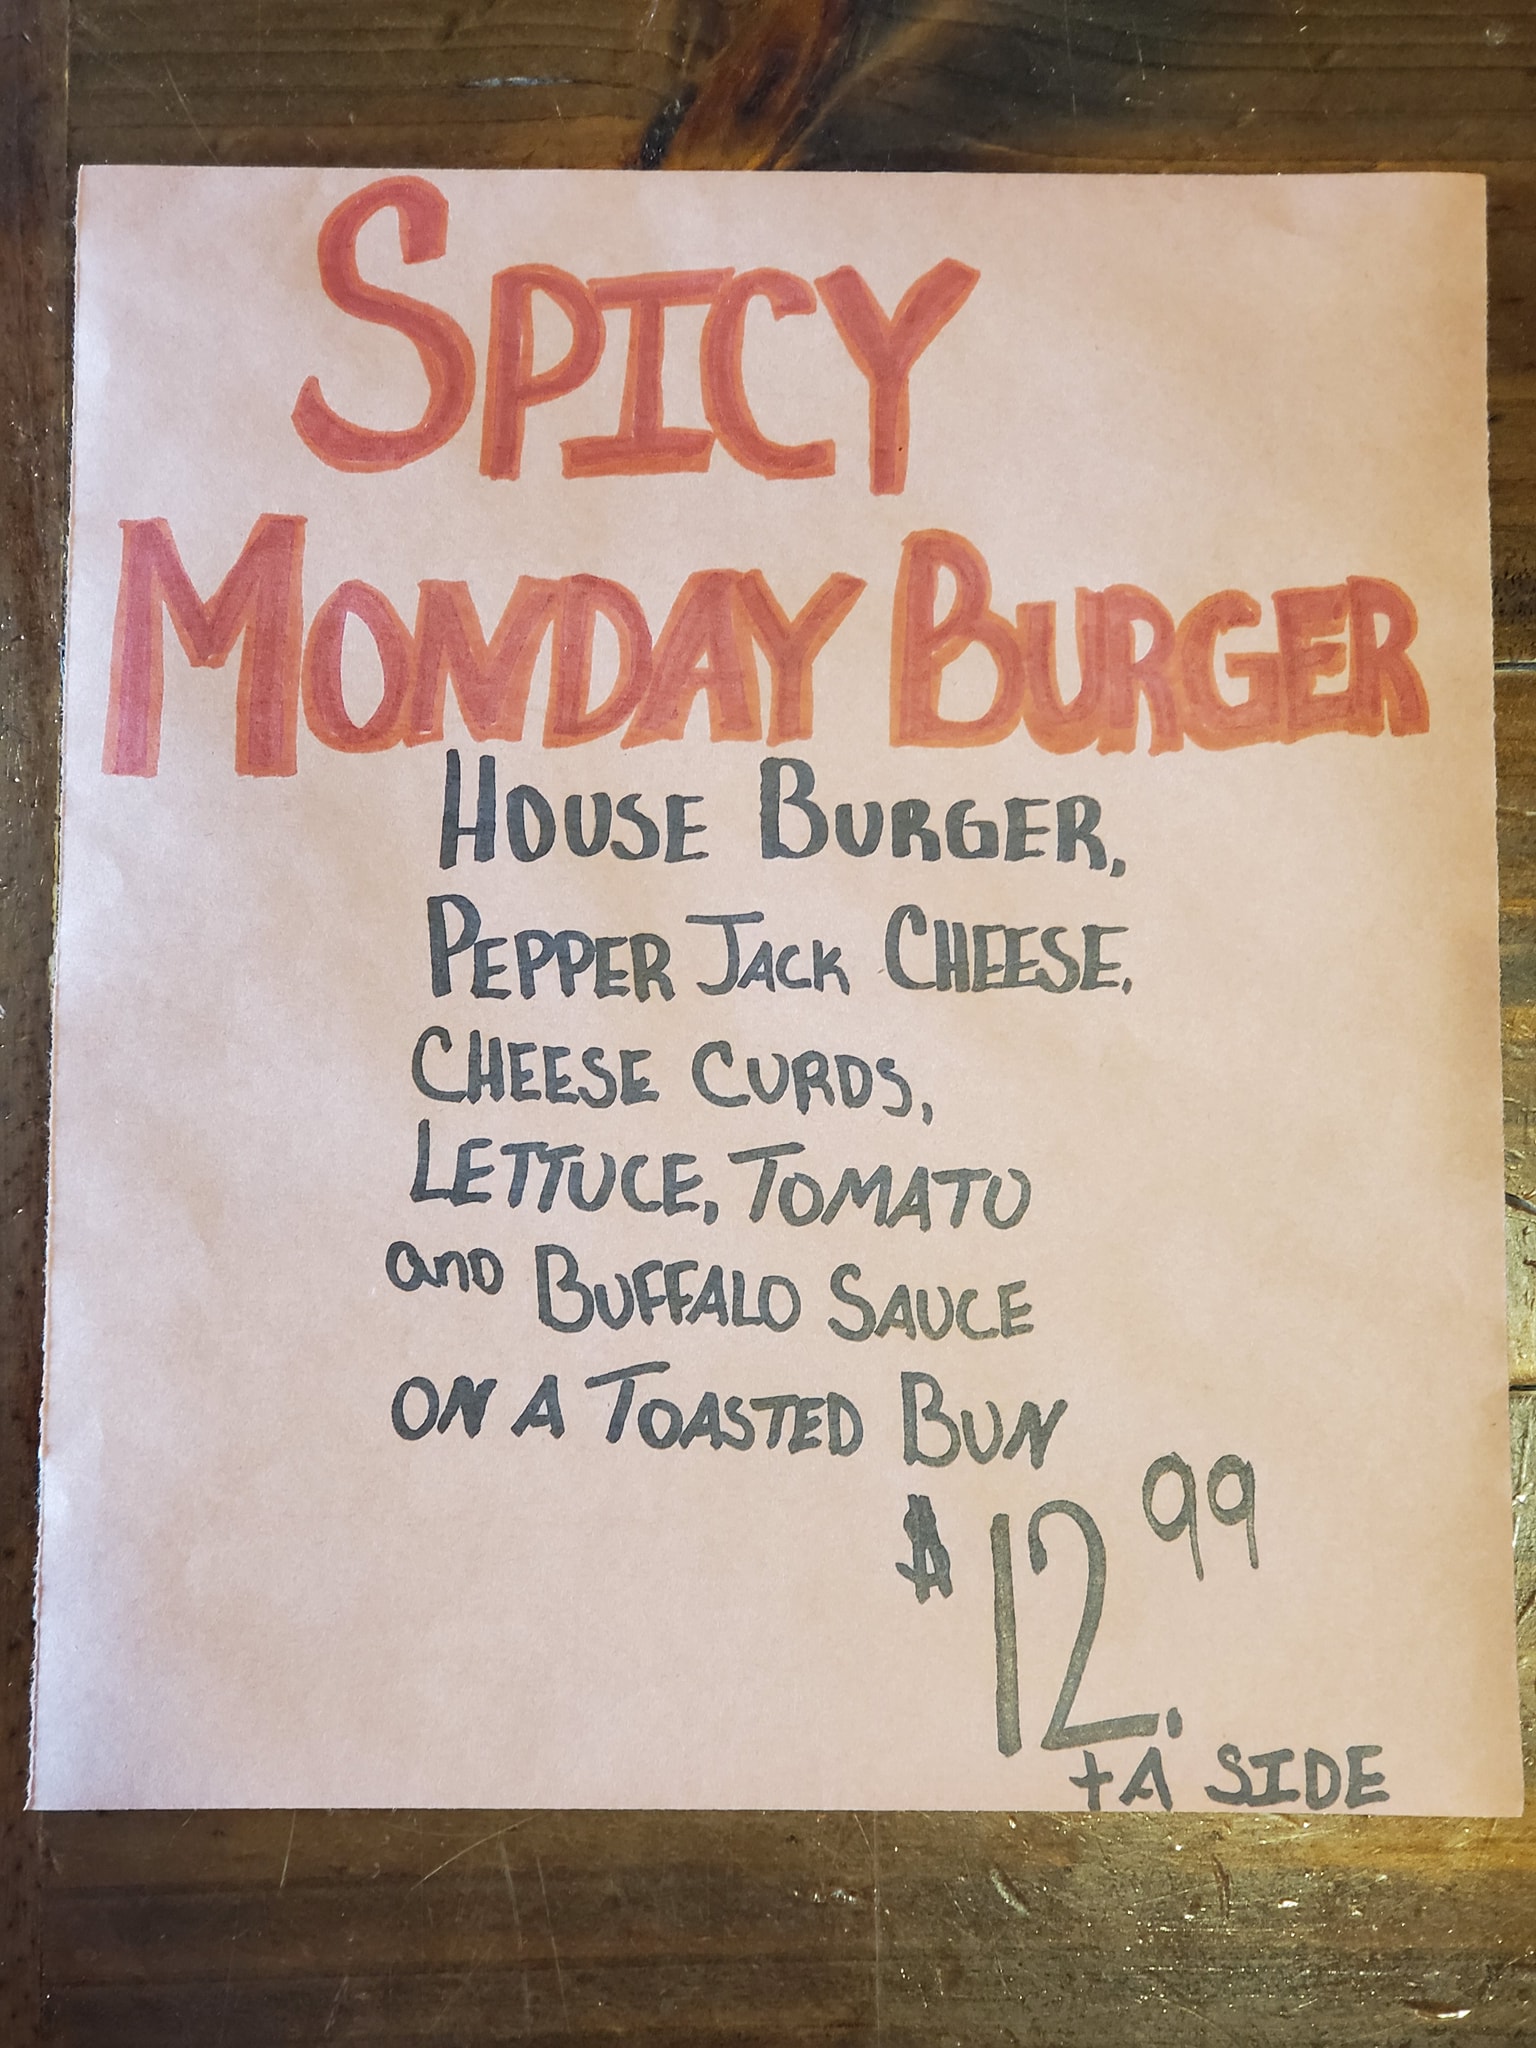 SPICY
MONDAY BURGER
HOUSE BURGER,
PEPPER JACK CHEESE,
CHEESE CURDS,
LETTUCE, TOMATO
and BUFFALO SAUCE
ON A TOASTED BUN
$12.99
+ A SIDE